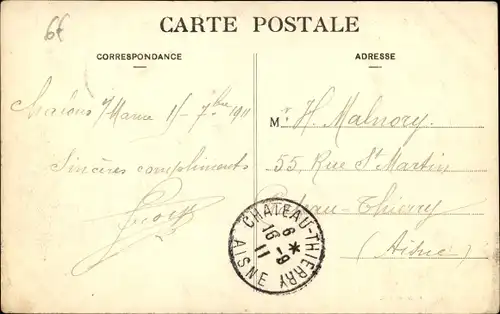 6€
CARTE POSTALE
CORRESPONDANCE
ADRESSE
Châlons s/Marne 15-7bre 1911
Sincères compliments
Mr H. Malnory.
55, Rue St Martin
Château-Thierry
(Aisne)
CHATEAU-THIERRY
6 *
16-9
11
AISNE